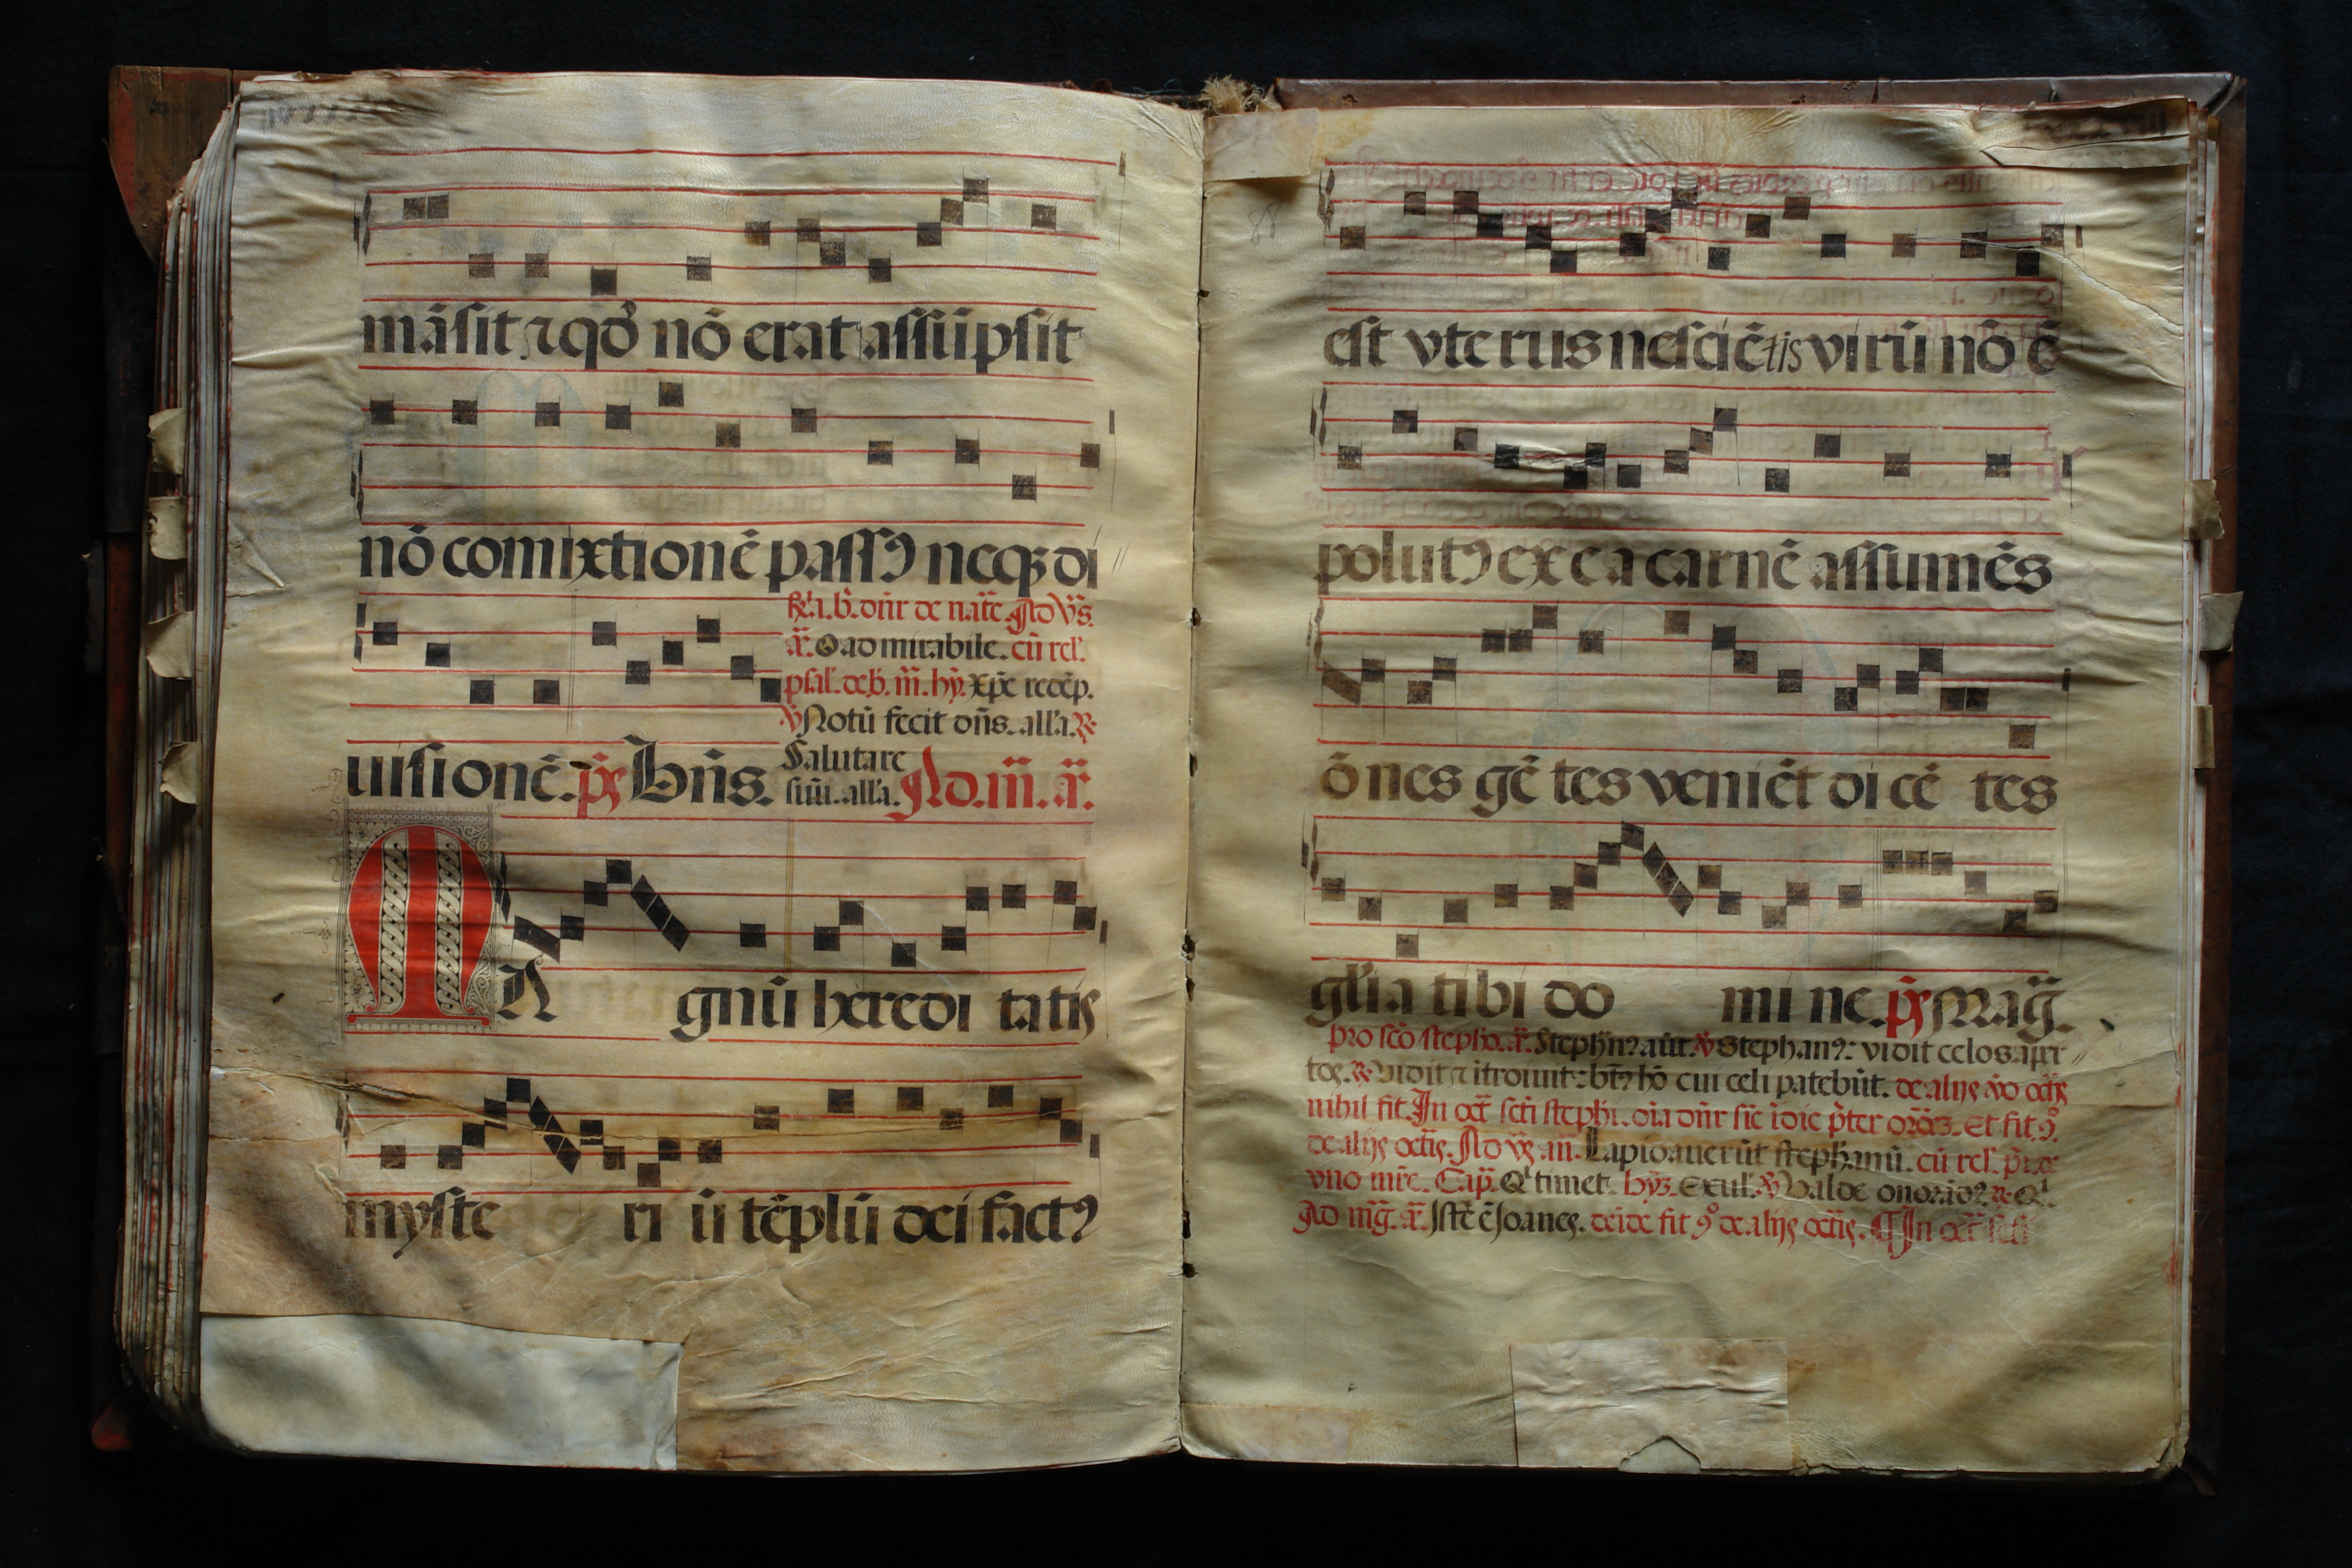 mãsit ⁊ qđ nõ erat assũpsit
nõ comixtionẽ passꝰ neqꝫ di
℟.i. b̃. dñr de natẽ. Ad v̾s.
añ. O admirabile. cũ rel'.
psal'. de b̃. m̃. hỹ. xp̃e redẽp.
℣ Notũ fecit dñs. all'a. ℟
uisionẽ. p̃s Bñs. Salutare
suũ. all'a. Ad. m̃. añ.
MA gnũ heredi tatis
myste ri ũ tẽplũ dei factꝰ
88
est vterus nesciẽtis virũ nõ ẽ
polutꝰ ex e a carnẽ assumẽs
õnes gẽ tes veniẽt di cẽ tes
gl'ia tibi do mi ne. p̃s Mag̃.
Pro scõ stepho. añ. Stephñꝰ aũt. ℣ Stephanꝰ: vidit celos aper
tos. ℟ Vidit ⁊ itroiuit: bt̃ꝰ hõ cui celi patebũt. de alijs
nihil fit. In oct̃ scti stephi. oĩa dñr sic ĩ die p̃ter Et fit
de alijs octĩs. Ad v̾s. añ. Lapidauerũt stephanũ. cũ rel'.
vno mr̃e. Cap̃. Qⁱ timet. hỹꝫ. Exul'. ℣ Valde onorãdꝰ ℟. Qⁱ.
Ad mg̃. añ. Iste ẽ Joanes. deĩde fit ꝯ de alijs octĩs. ¶ In oct̃